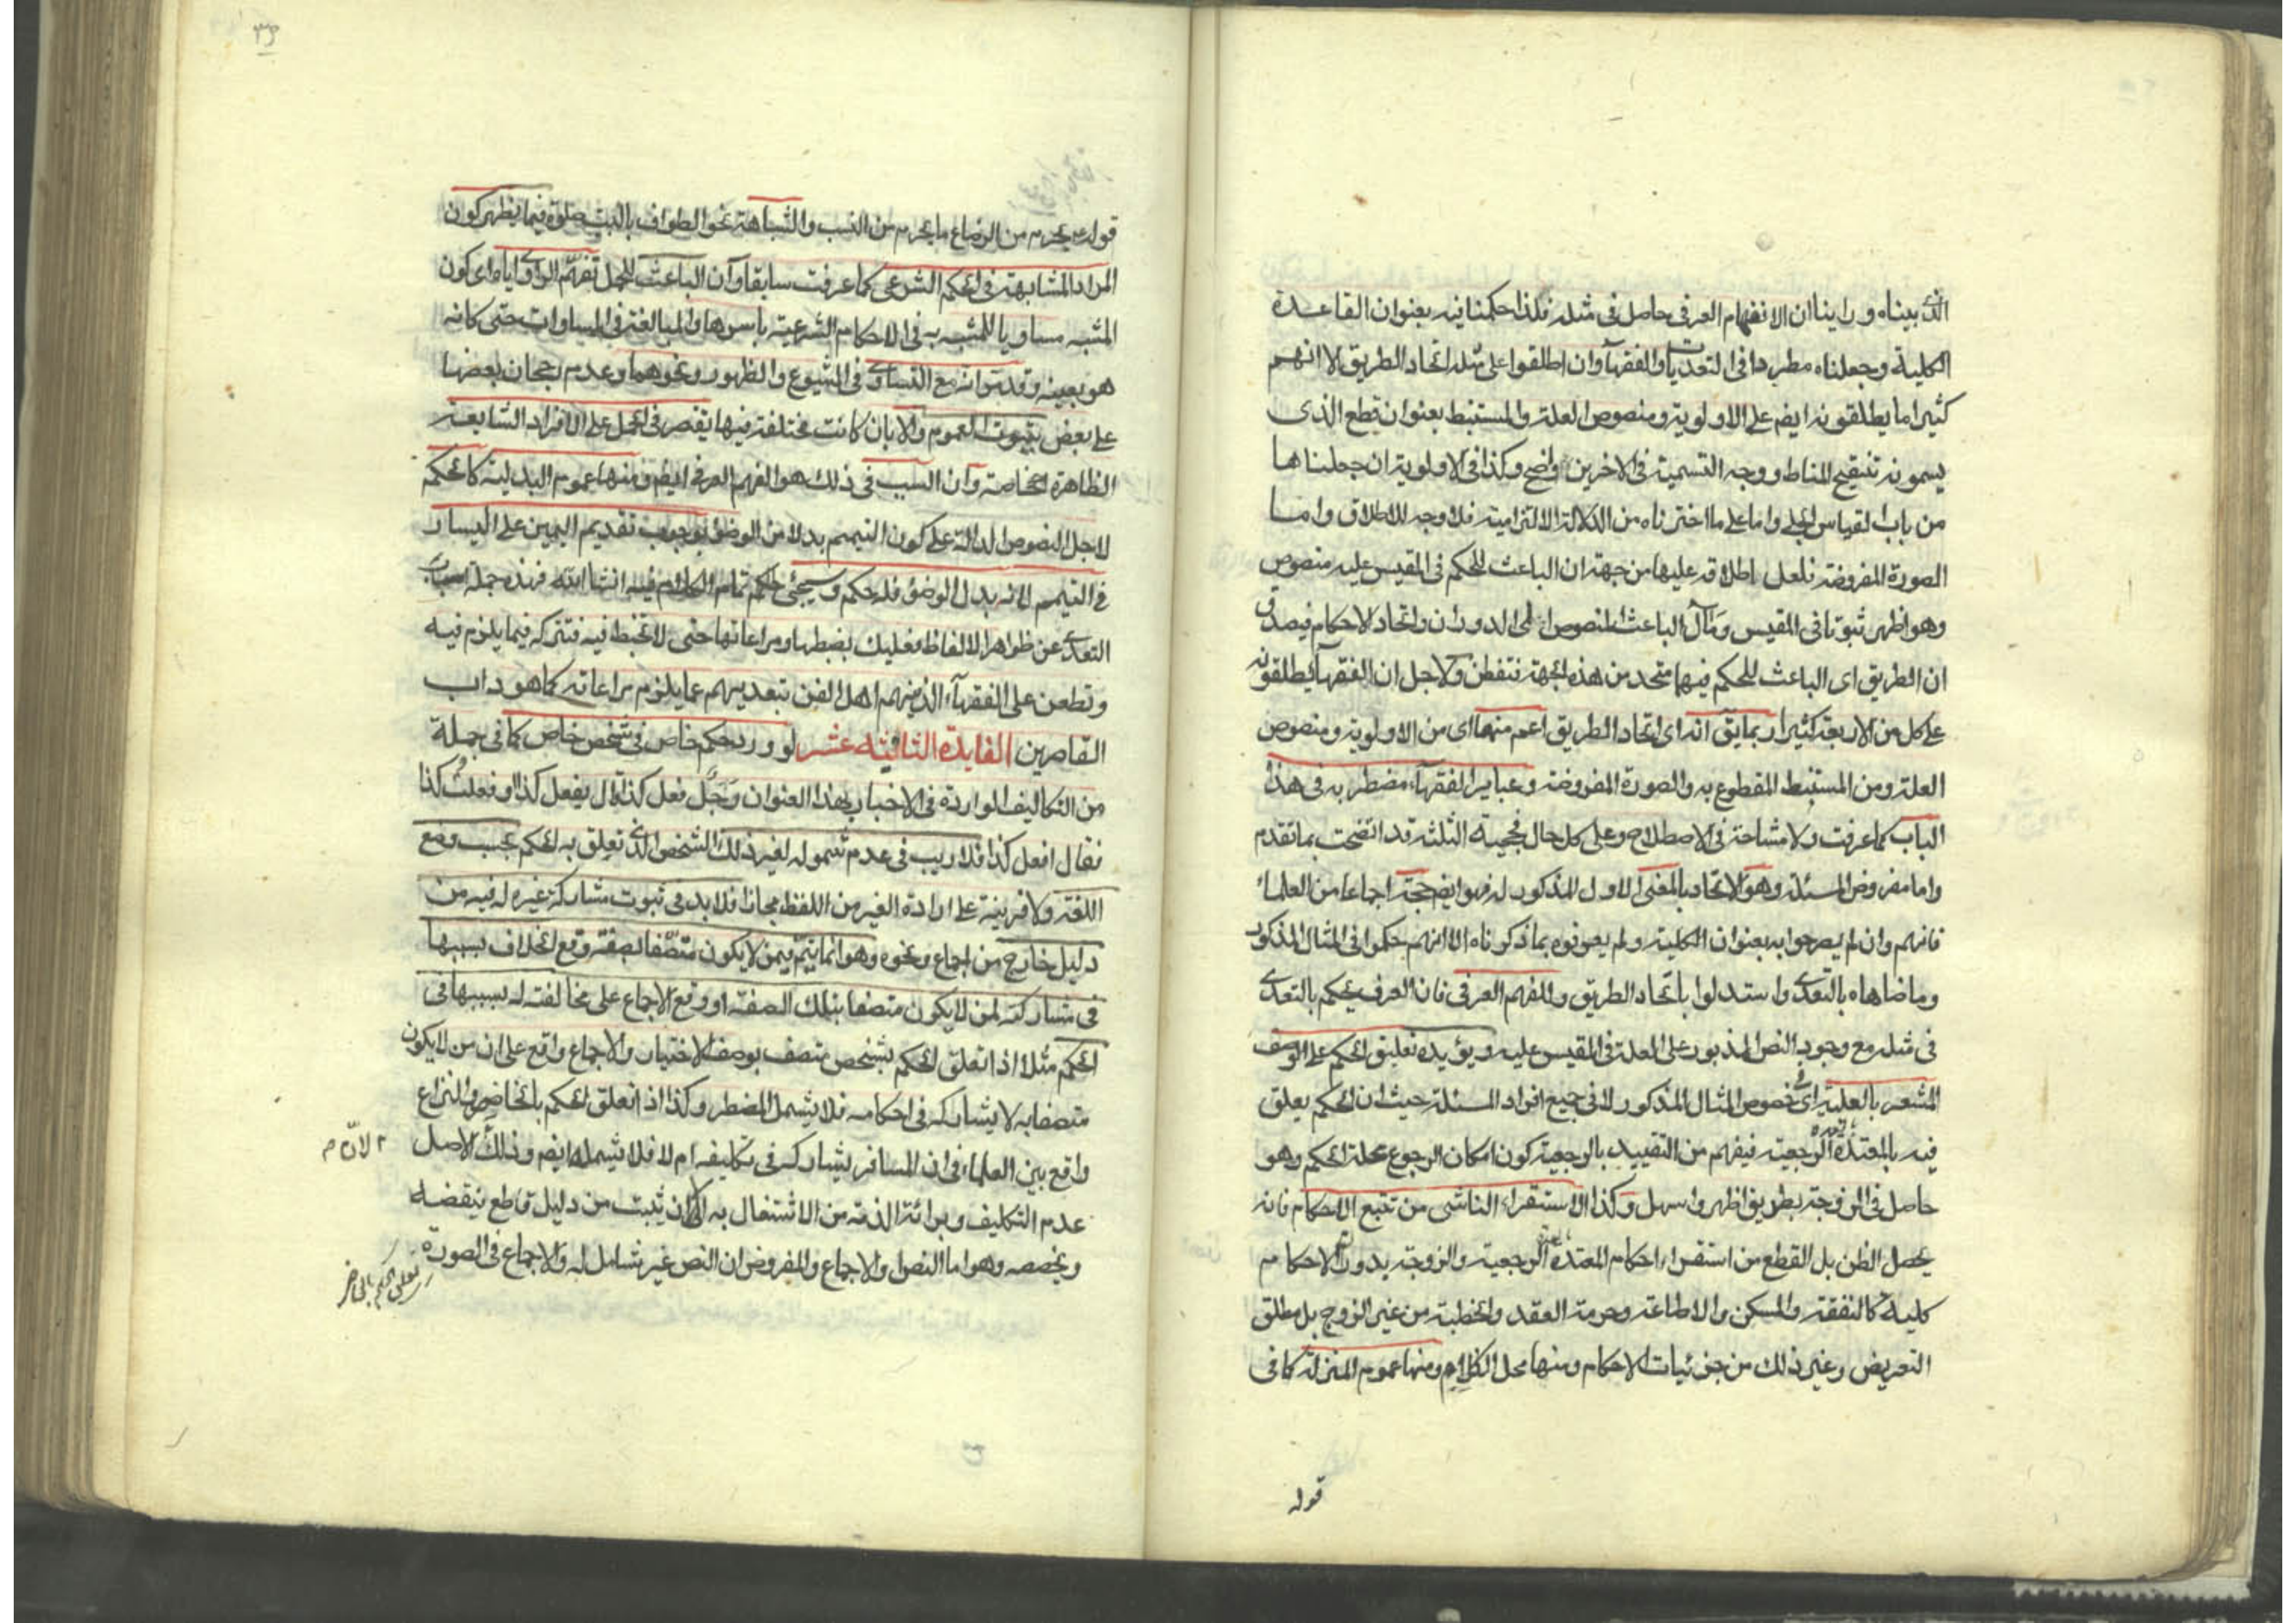 الذى بيناه وراينا ان الانفهام العرفى حاصل فى مثله فلذا حكمنا فيه بعنوان القاعدة
الكلية وجعلناه مطردا فى التعديات والفقهآء وان اطلقوا على مثله اتحاد الطريق الا انهم
كثيرا ما يطلقونه ايضم على الاولوية ومنصوص العلة والمستنبط بعنوان قطع الذى
يسمونه تنقيح المناط ووجه التسمية فى الاخرين واضح وكذا فى الاولوية ان جعلناها
من باب القياس الجلى واما على ما اخترناه من الدلالة الالتزامية فلا وجه للاطلاق واما
الصورة المفروضة فلعل اطلاقه عليها من جهة ان الباعث للحكم فى المقيس عليه منصوص
وهو اظهر ثبوتا فى المقيس ومآل الباعث المنصوص الى الدوران واتحاد الاحكام فيصدق
ان الطريق اى الباعث للحكم فيها متحد من هذه الجهة فتفطن ولاجل ان الفقهآء يطلقونه
على كل من الاربعة كثيرا ربما يق انه اى اتحاد الطريق اعم منها اى من الاولوية ومنصوص
العلة ومن المستنبط المقطوع به والصورة المفروضة وعباير الفقهآء مضطربه فى هذا
الباب كما عرفت ولا مشاحة فى الاصطلاح وعلى كل حال فحجية الثلثة قد اتضحت بما تقدم
واما مفروض المسئلة وهو الاتحاد بالمعنى الاول المذكور له فهو ايضم حجة اجماعا من العلماء
فانهم وان لم يصرحوا به بعنوان الكلية ولم يعرفوه بما ذكرناه الا انهم حكموا فى المثال المذكور
وما ضاهاه بالتعدى واستدلوا باتحاد الطريق وللفهم العرفى فان العرف يحكم بالتعدى
فى مثله مع وجود النص المذبور على العلة فى المقيس عليه ويؤيده تعليق الحكم على الوصف
المشعر بالعلية اى فى خصوص المثال المذكور لا فى جميع افراد المسئلة حيث ان الحكم يعلق
فيه بالمعتدة الرجعية فيفهم من التقييد بالرجعية كون امكان الرجوع علة الحكم وهو
حاصل فى الزوجة بطريق اظهر واسهل وكذا الاستقراء الناشى من تتبع الاحكام فانه
يحصل الظن بل القطع من استقراء احكام المعتدة الرجعية والزوجة بدوران الاحكام
كلية كالنفقة والمسكن والاطاعة وحرمة العقد والخطبة من غير الزوج بل مطلق
التعريض وغير ذلك من جزئيات الاحكام ومنها محل الكلام ومنها عموم المنزلة كما فى
قوله
٣٥
قوله ع يحرم من الرضاع ما يحرم من النسب والشباهة نحو الطواف بالبيت صلوة فيما يظهر كون
المراد المشابهة فى الحكم الشرعى كما عرفت سابقا وآن الباعث للحمل تفهّم الراوى اياه اى كون
المشبه مساويا للمشبه به فى الاحكام الشرعية باسرها والمبالغة فى المساوات حتى كانه
هو بعينه وقد مرّ انه مع التساوى فى الشيوع والظهور ونحوهما وعدم رجحان بعضها
على بعض بثبوت العموم والا بان كانت مختلفة فيها يقتصر فى الحمل على الافراد الشايعة
الظاهرة خاصة وآن السبب فى ذلك هو الفهم العرفى ايضم ومنها عموم البدلية كالحكم
لاجل النصوص الدالة على كون التيمم بدلا من الوضؤ بوجوب تقديم اليمين على اليسار
فى التيمم لانه بدل الوضؤ فله حكمه وسيجئ تمام الكلام فيه انشاء الله فهذه جملة اسباب
التعدى عن ظواهر الالفاظ فعليك بضبطها ومراعاتها حتى لا تخبط فيه فتتركه فيما يلزم فيه
وتطعن على الفقهآء الذين هم اهل الفن بتعديهم عما يلزم مراعاته كما هو داب
القاصرين الفايدة الثانيه عشر لو ورد حكم خاص فى شخص خاص كما فى جملة
من التكاليف الواردة فى الاخبار بهذا العنوان رجل فعل كذا قال يفعل كذا او فعلت كذا
فقال افعل كذا فلا ريب فى عدم شموله لغير ذلك الشخص الذى تعلق به الحكم بحسب وضع
اللغة ولا قرينة على ارادة الغير من اللفظ مجازا فلا بد فى ثبوت مشاركة غيره له فيه من
دليل خارج من اجماع ونحوه وهو انما يتم فيمن لا يكون متصفا بصفة وقع الخلاف بسببها
فى مشاركته لمن لا يكون متصفا بتلك الصفة او وقع الاجماع على مخالفته له بسببها فى
الحكم مثلا اذا تعلق الحكم بشخص متصف بوصف الاختيار والاجماع واقع على ان من لا يكون
متصفا به لا يشاركه فى احكامه فلا يشمل المضطر وكذا اذا تعلق الحكم بالحاضر والنزاع
واقع بين العلماء فى ان المسافر يشاركه فى تكليفه ام لا فلا يشمله ايضم وذلك الاصل
لانّ
عدم التكليف وبرائة الذمة من الاشتغال به الا ان يثبت من دليل قاطع ينقضه
ويخصصه وهو اما النص او الاجماع والمفروض ان النص غير شامل له والاجماع فى الصورة
تعلق الحكم بالحاضر